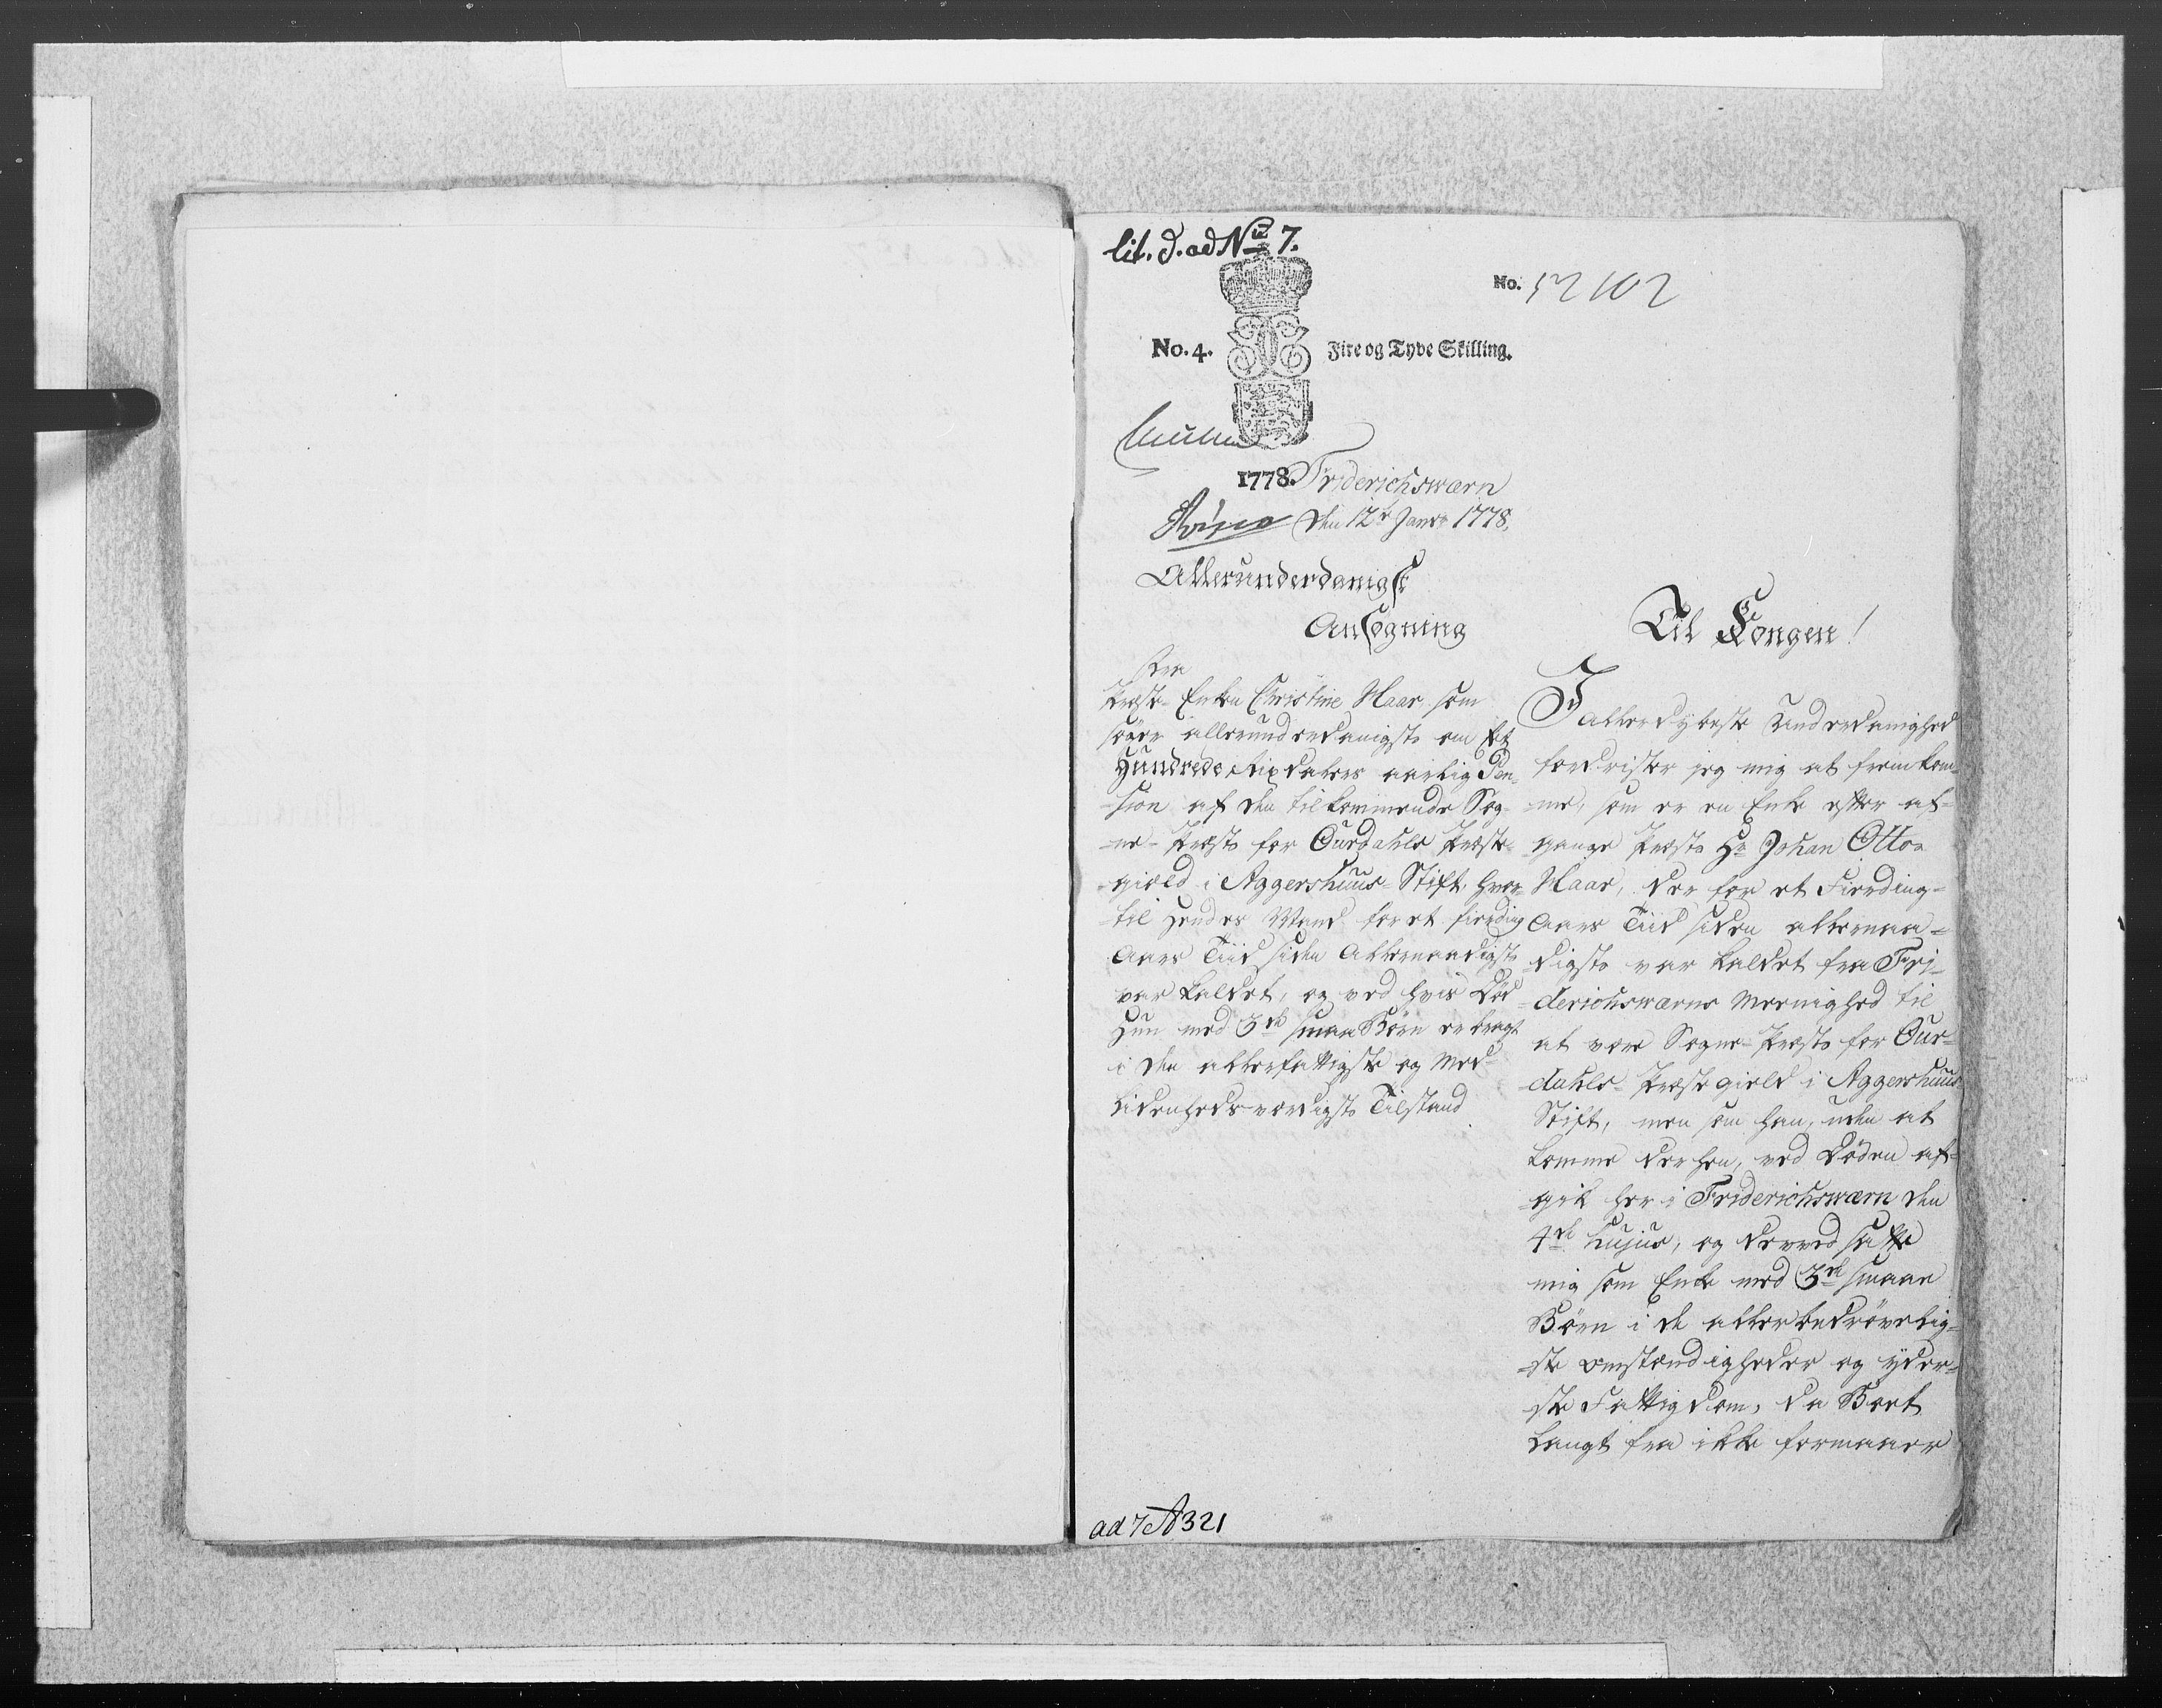 lit. d. ad No 7.
No. 52102
No. 4.
Fire og Tyve Skilling.
1778.
Friderichswærn
den 12te Janr 1778.
Allerunderdanigst
Ansøgning
fra
Præste-Enken Christine Maar, som
søger allerunderdanigst om Et
Hundrede Rixdalers aarlig Pen-
-sion af den tilkommende Sog-
-ne-Præst for Ourdahls Præste-
-gield i Aggershuus-Stift, hvor-
-til hendes Mand for et fierding
Aars Tiid siden Allernaadigst
var kaldet, og ved hvis Død
Hun med 3de smaa Børn er bragt
i den allerfattigste og Med-
lidenhedsværdigste Tilstand
Til Kongen!
I allerdybeste Underdanighed
fordrister jeg mig at fremkom-
-me, som er en Enke efter af-
-gangne Præst Hr Johan Otto
Maar, der for et Fierding-
Aars Tiid siden allernaa-
-digst var kaldet fra Fri-
-derichswærns Meenighed til
at være Sogne-Præst for Our-
-dahls-Præstegield i Aggershuus
Stift, men som han, uden at
komme derhen, ved Døden af-
-gik her i Friderichswærn den
4de hujus, og derved satte
mig som Enke med 3de smaae
Børn i de allerbedrøvelig-
-ste Omstændigheder og yder-
-ste Fattigdom, da Boet
langt fra ikke formaaer
ad 7 A 321